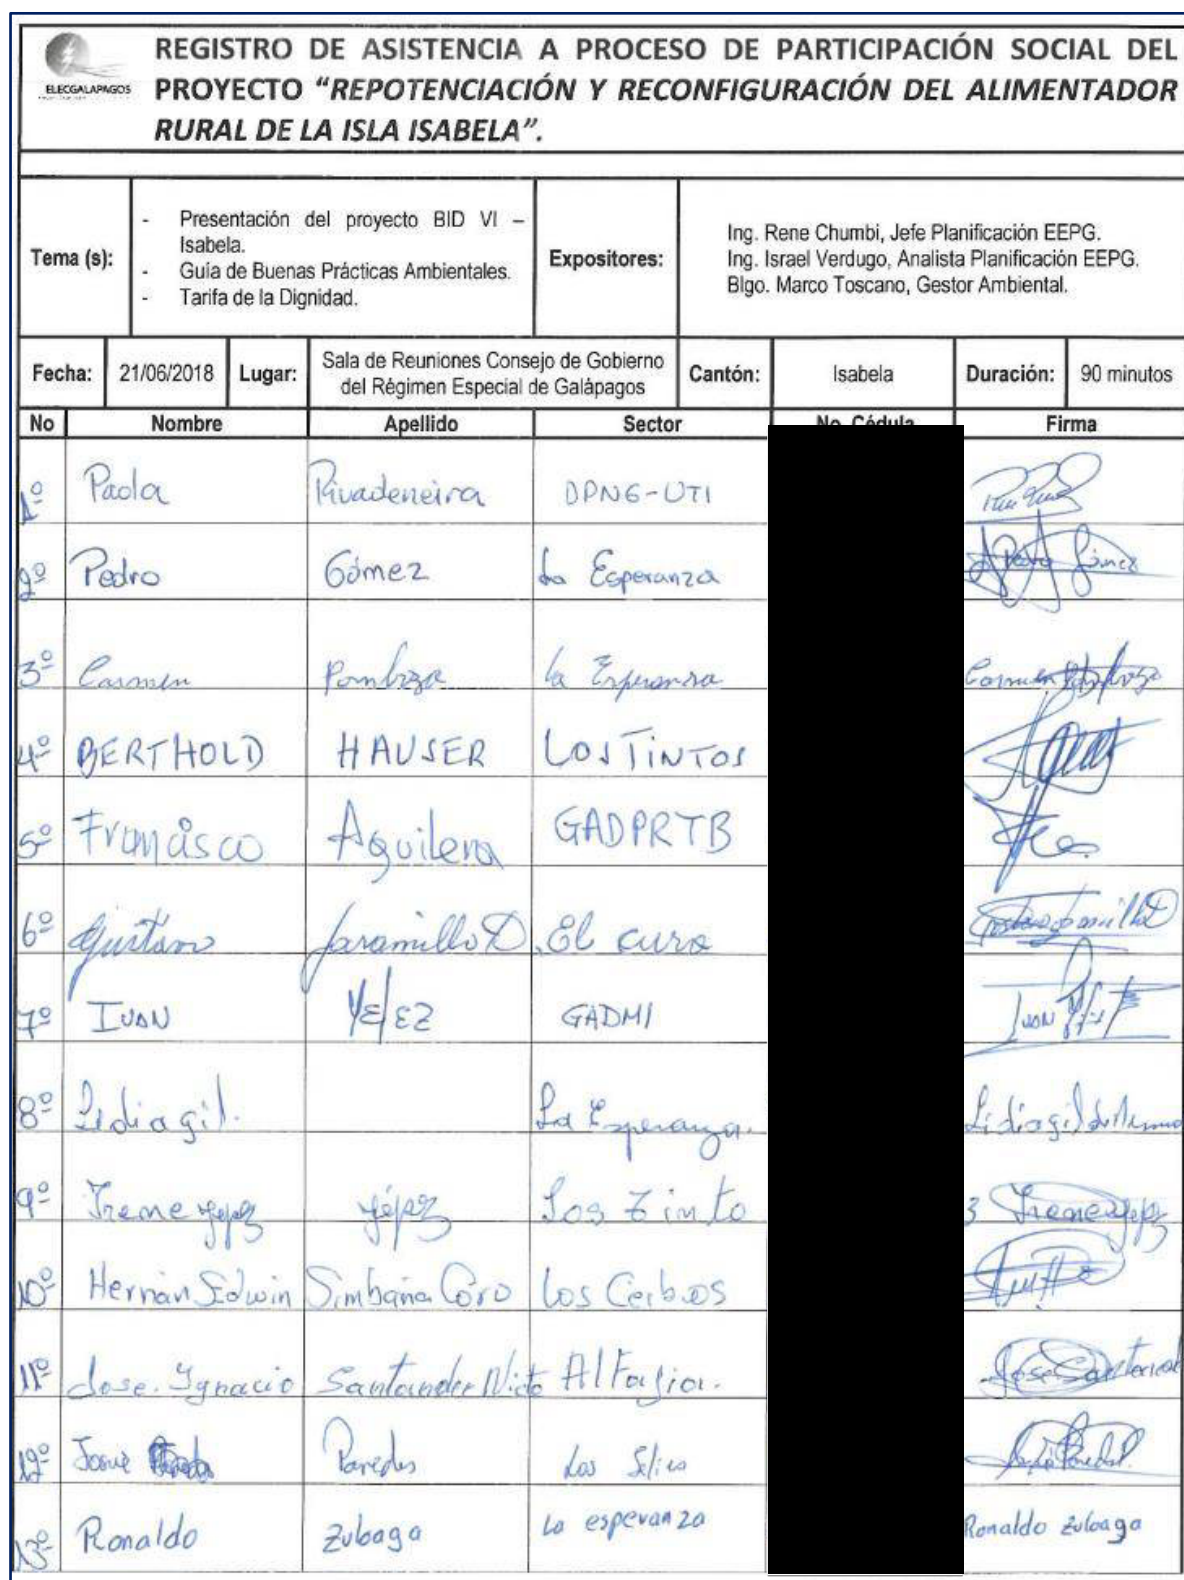 ELECGALAPAGOS
REGISTRO DE ASISTENCIA A PROCESO DE PARTICIPACIÓN SOCIAL DEL
PROYECTO "REPOTENCIACIÓN Y RECONFIGURACIÓN DEL ALIMENTADOR
RURAL DE LA ISLA ISABELA".
Tema (s):
- Presentación del proyecto BID VI –
Isabela.
- Guía de Buenas Prácticas Ambientales.
- Tarifa de la Dignidad.
Expositores:
Ing. Rene Chumbi, Jefe Planificación EEPG.
Ing. Israel Verdugo, Analista Planificación EEPG.
Blgo. Marco Toscano, Gestor Ambiental.
Fecha: 21/06/2018 Lugar: Sala de Reuniones Consejo de Gobierno
del Régimen Especial de Galápagos
Cantón: Isabela Duración: 90 minutos
No Nombre Apellido Sector No. Cédula Firma
1º Paola Rivadeneira DPNG-UTI
2º Pedro Gómez La Esperanza Pedro Gómez
3º Carmen La Esperanza Carmen
4º BERTHOLD HAUSER LOS TINTOS
5º Francisco Aguilera GADPRTB
6º Gustavo Jaramillo D. El cura
7º IVAN GADMI IVAN
8º Lidia gil. La Esperanza. Lidia gil
9º Irene yépez yépez Los tinto 3 Irene yépez
10º Hernán Edwin Simbaña Coro Los Ceibos
11º Jose. Ignacio Santander Nieto Alfagia. Jose Santander
12º Paredes Los
13º Ronaldo Zuloaga La esperanza Ronaldo Zuloaga